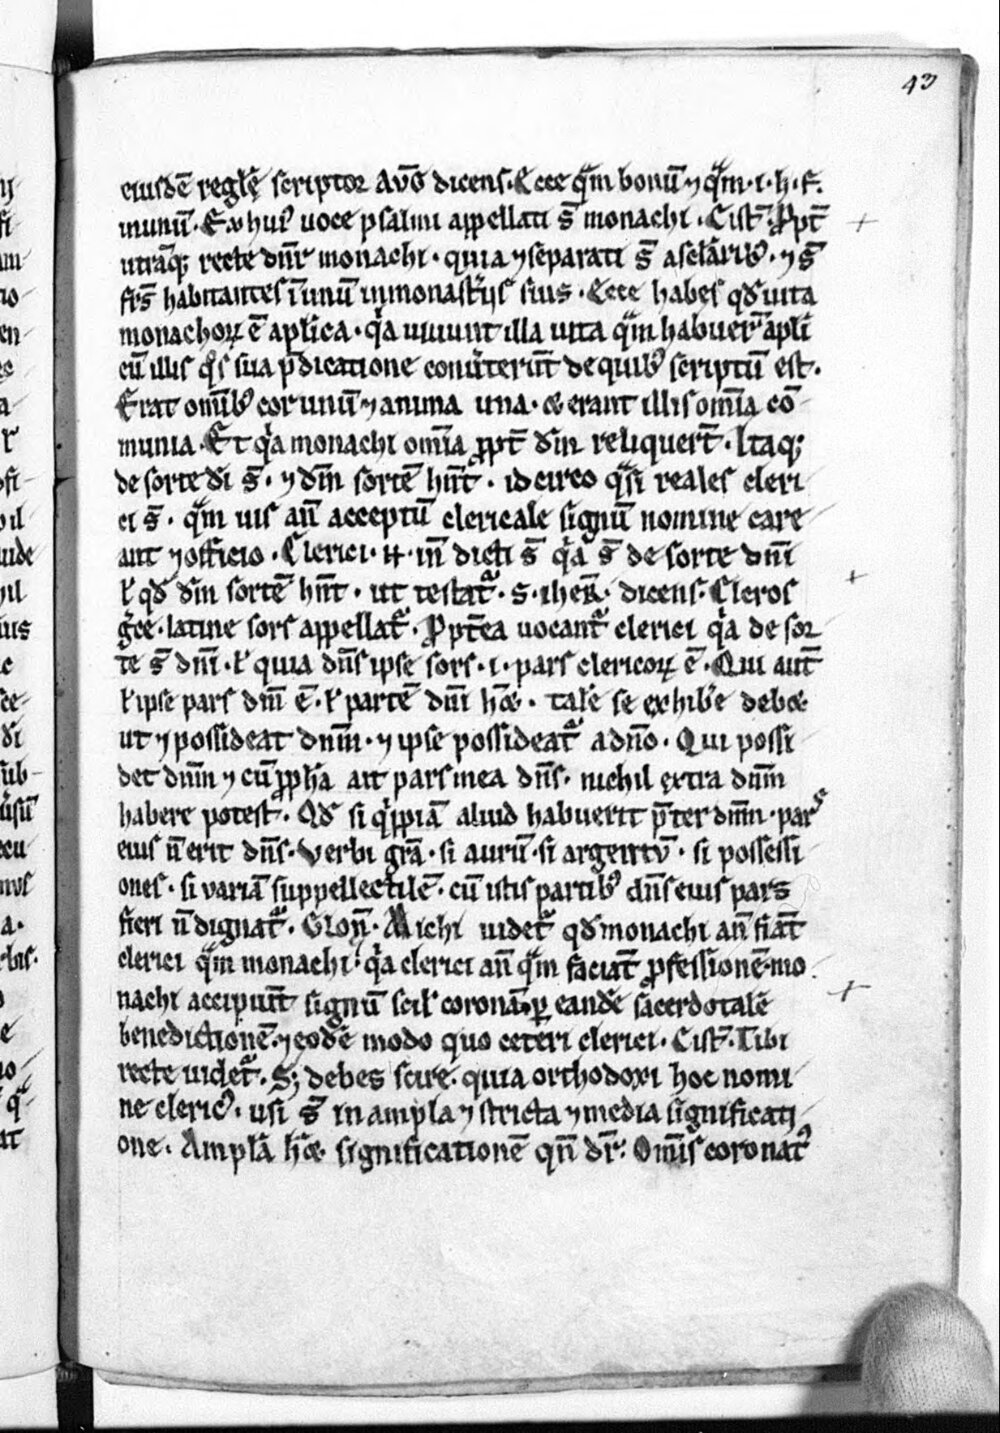 43
eiusdē reglę scriptor Avḡ dicens. Ecce qͣm bonū ⁊ qͣm . i . h . F .
munū . Ex huiꝰ uoce psalmi appellati s̄t monachi . Cist̄ . Ꝓpt̄
utrāqꝫ recte dn̄r monachi . quia ⁊ separati s̄ a sclarībꝰ . ⁊ s̄
fr̄s habitantes ī unū in monastijs suis . Ecce habes qd̄ uita
monachoꝝ ē aplīca . qͥa uiuunt illa uita qͣm habuer̄ apli
cū illis qͦs sua p̄dicatione conūterūt de quibꝰ scriptū est .
Erat omībꝰ cor unū ⁊ anima una . & erant illis omīa cō
munia . Et qͥa monachi omīa ꝓpt̄ dm̄ reliquert̄ . Itaqꝫ
de sorte dī s̄ . ⁊ dm̄ sortē hn̄t . idcirco qͣsi reales cleri
ci s̄ . qͣm uis an̄ acceptū clericale signū nomine care
ant ⁊ officio . Clerici . n̄ . in̄ dicti s̄ qͥa s̄ de sorte dn̄i
ł qd̄ dm̄ sortē hn̄t . ut testat᷑ . S . iheR̄ . dicens . Cleros
gͬce . latine sors appellat᷑ . Ꝓpt̄ea uocant᷑ clerici qͥa de sor
te s̄ dn̄i . ł quia dn̄s ipse sors . i . pars clericoꝝ ē . Qui aut̄
ł ipse pars dn̄i ē . ł partē dn̄i h̄& . tale se exhibe deb&
ut ⁊ possideat dnm̄ . ⁊ ipse possideat᷑ a dn̄o . Qui possi
det dnm̄ ⁊ cū ꝓph̄a ait pars mea dn̄s . nichil extra dnm̄
habere potest . Qd̄ si qͥppiā aliud habuerit p̄ter dnm̄ . pars
eius n̄ erit dn̄s . Verbi gr̄a . si aurū . si argentū . si possessi
ones . si variā suppellectilē . cū istis partibꝰ dn̄s eius pars
fieri n̄ dignat᷑ . Clon̄ . Michi uidet᷑ qd̄ monachi an̄ fiāt
clerici qͣm monachi . qͥa clerici an̄ qͣm faciāt ꝓfessionē . mo
nachi accipiūt signū scił coronā . ꝑ eandē sacerdotalē
benedictionē . ⁊ eodē modo quo ceteri clerici . Cist̄ . Tibi
recte uidet᷑ . Sꝫ debes scire . quia orthodoxi hoc nomi
ne clericꝰ . usi s̄ in ampla ⁊ stricta ⁊ media significati
one . Amplā h̄& significationē qn̄ dr̄ : Omīs coronatꝰ